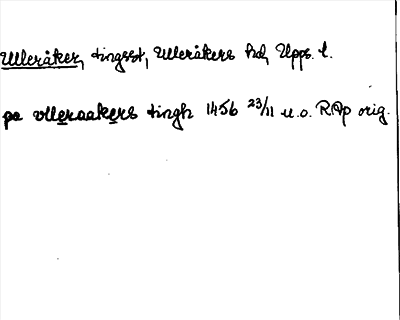 Ulleråker, tingsst, Ulleråkers hd, Upps. l.
pa vlleraakers tingh 1456 23/11 u.o. RAp orig.